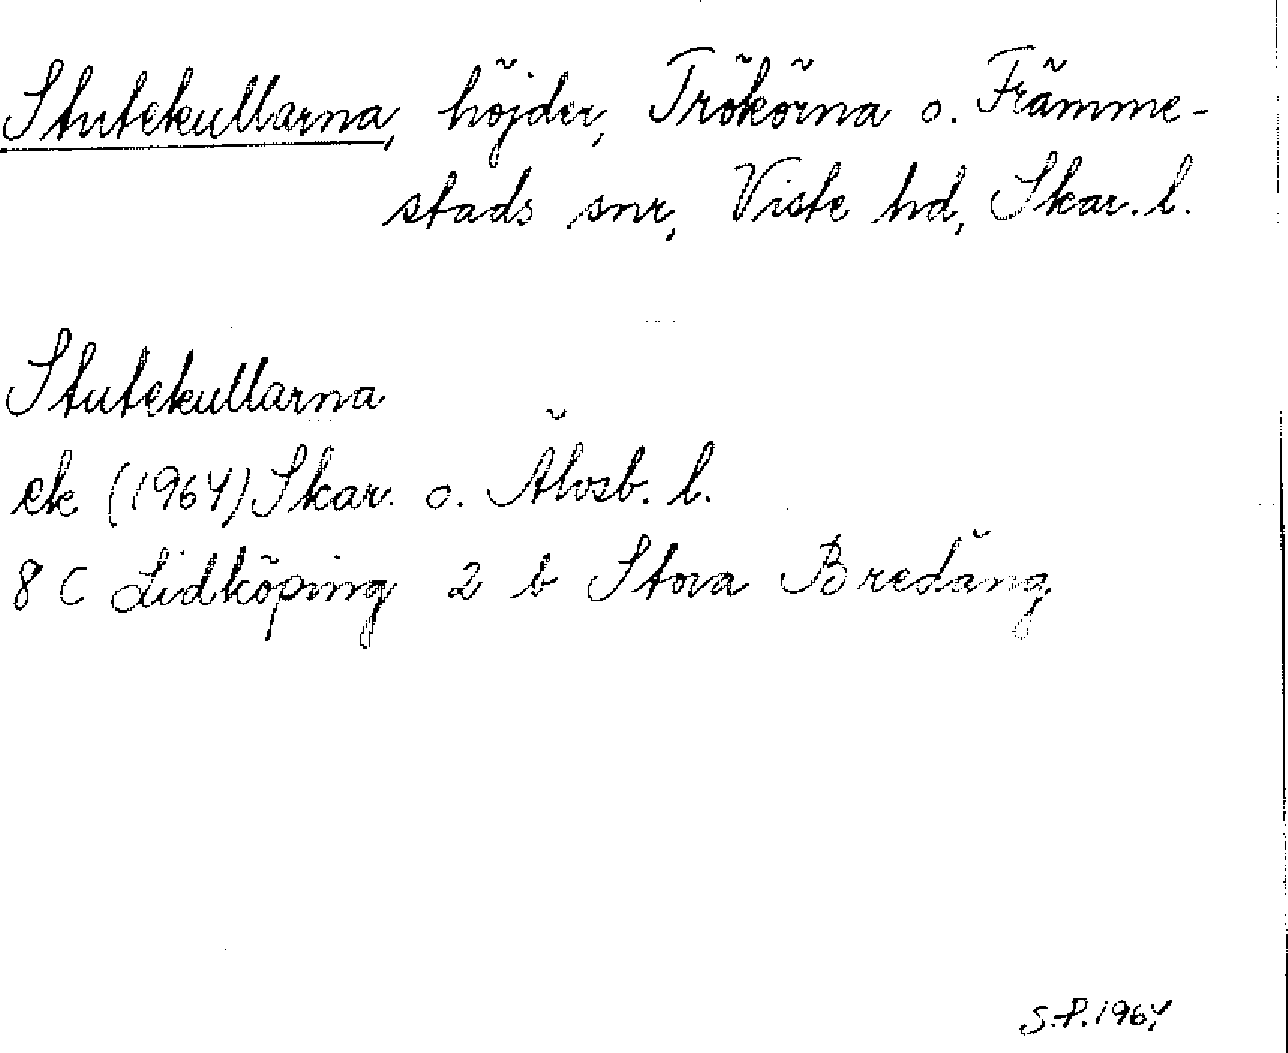 Stutekullarna, höjder, Trökörna o. Främme-
stads snr, Viste hd, Skar. l.
Stutekullarna
ek (1964) Skar. o. Älvsb. l.
8 C Lidköping 2 b Stora Bredäng
S.P. 1964